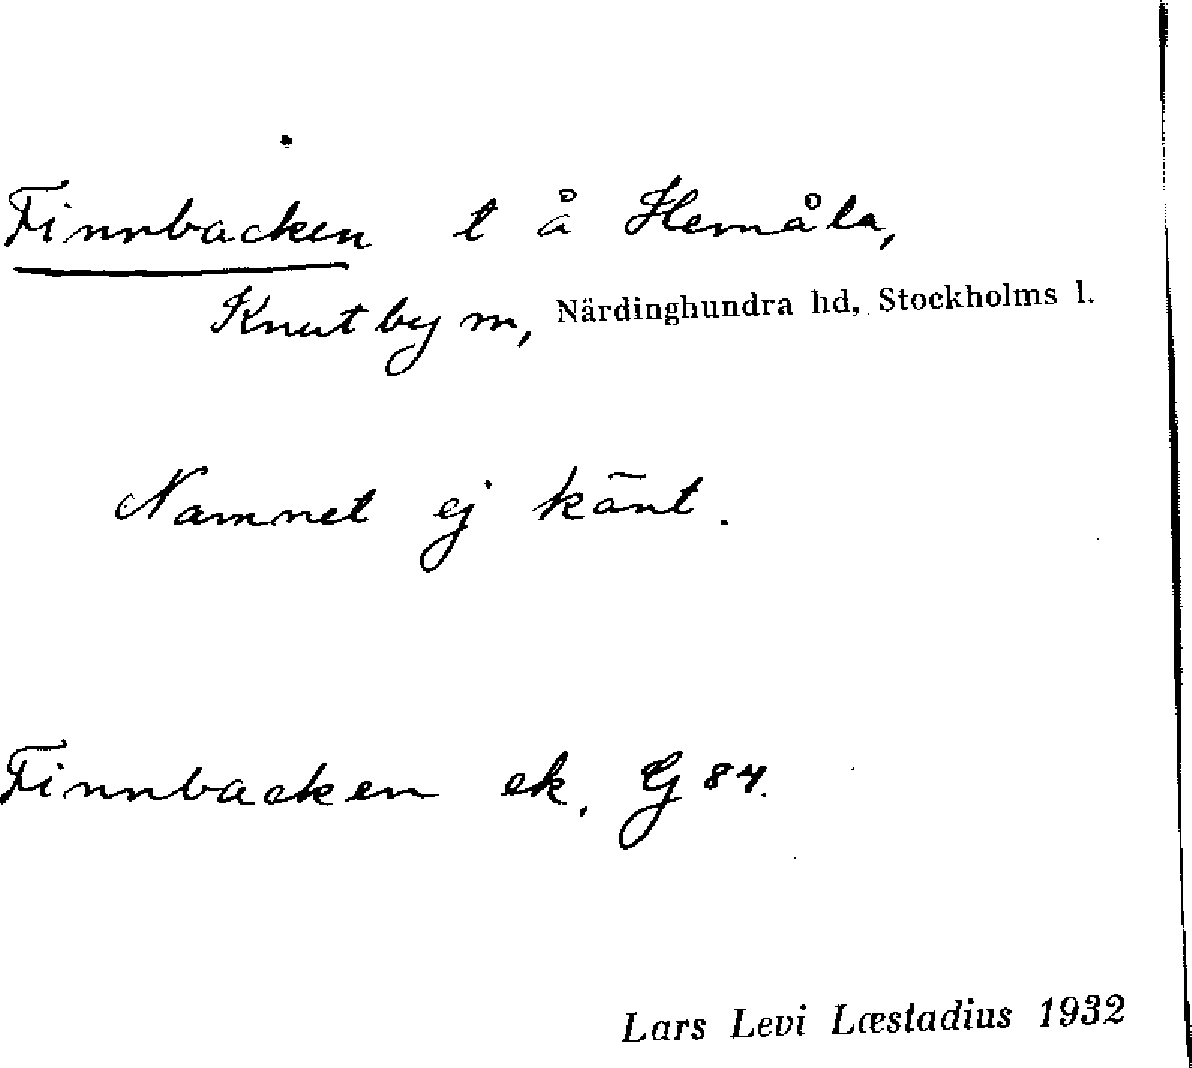 Finnbacken t å Hemåla,
Knutby m, Närdinghundra hd, Stockholms l.
Namnet ej känt.
Finnbacken ek. G 84.
Lars Levi Læstadius 1932